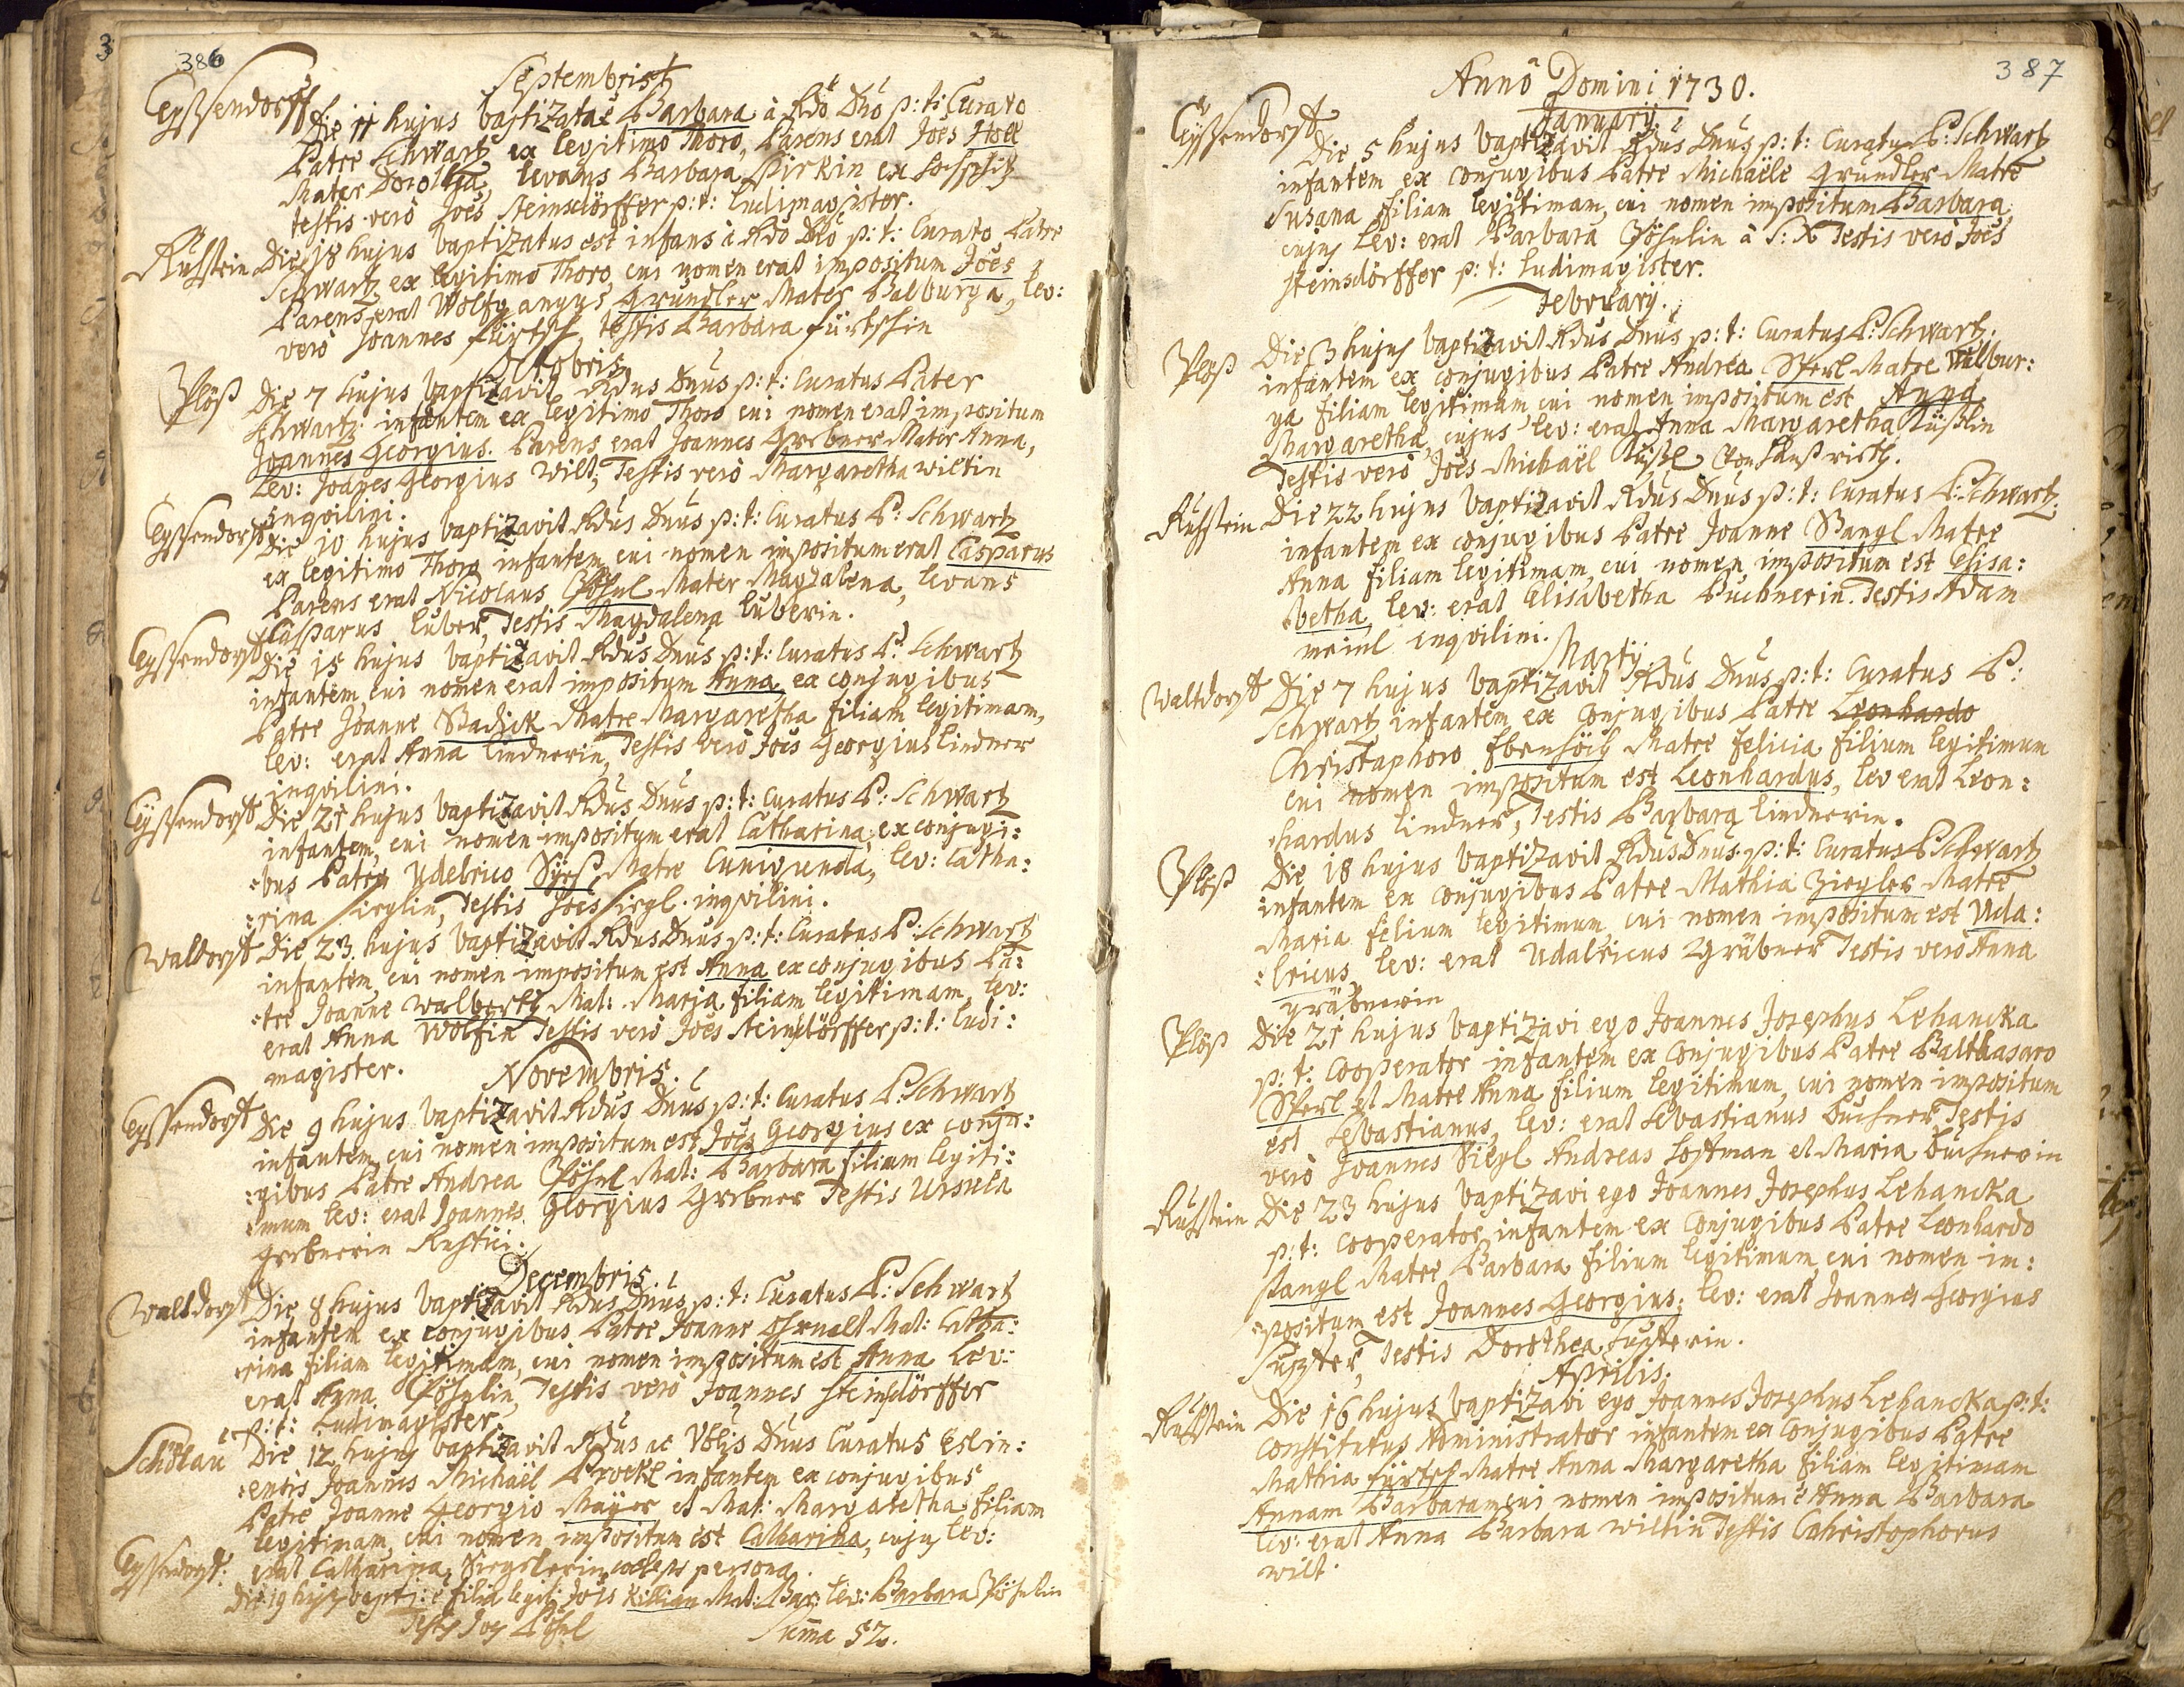 386
Septembris
Eyßendorff Die 11 hujus baptizata ē Barbara à Rdo Dno p: t: Curato
Patre Schwartz ex legitimo Thoro, Parens erat Joēs
Mater Dorothea, levans Barbara Pirkin ex
testis verò Joēs Steinsdörffer p: t: Ludimagister.
Rustein Die 18 hujus baptizatus est infans à Rdo Dno p: t: Curato Patre
Schwartz ex legitimo Thoro, cui nomen erat impositum Joēs
Parens erat Wolfgangus Grundler Mater Walburga, Lev:
verò Joannes Fürtsch, testis Barbara Fürtschin
Octobris
Plöß Die 7 hujus baptizavit Rdus Dnus p: t: Curatus Pater
Schwartz infantem ex legitimo Thoro cui nomen erat impositum
Joannes Georgius. Parens erat Joannes Grebner Mater Anna,
Lev: Joanes Georgius Wilt, Testis verò Margaretha Wiltin
inqvilini.
Eyßendorf Die 10 hujus baptizavit Rdus Dnus p: t: Curatus P: Schwartz
ex legitimo Thoro infantem cui nomen impositum erat Casparus
Parens erat Nicolaus Pöhnl Mater Magdalena, levans
Casparus Luber, Testis Magdalena Luberin.
Eyßendorf Die 15 hujus baptizavit Rdus Dnus p: t: Curatus P: Schwartz
infantem, cui nomen erat impositum Anna, ex conjugibus
Patre Joanne Wadick Matre Margaretha filiam legitimam,
lev: erat Anna Lindnerin, Testis verò Joēs Georgius Lindner
inqvilini.
Eyßendorf Die 21 hujus baptizavit Rdus Dnus p: t: Curatus P: Schwartz
infantem, cui nomen impositum erat Catharina, ex conjugi:
:bus Patre Udelrico Syeß Matre Cunigunda, lev: Catha:
:rina Sieglin, Testis Joēs Siegl inqvilini.
Waltdorf Die 23 hujus baptizavit Rdus Dnus p: t: Curatus P: Schwartz
infantem, cui nomen impositum est Anna ex conjugibus Pa:
:tre Joanne Mat: Maria filiam legitimam, lev:
erat Anna Wolfin Testis verò Joēs Steinsdörffer p: t: Ludi:
magister.
Novembris.
Eyßendorf Die 9 hujus baptizavit Rdus Dnus p: t: Curatus P: Schwartz
infantem, cui nomen impositum est Joēs Georgius ex conju:
:gibus Patre Andrea Pöhnl Mat: Barbara filium legiti:
:mum lev: erat Joannes Georgius Grebner Testis Ursula
Grebnerin Rustici.
Decembris.
Waltdorf Die 8 hujus baptizavit Rdus Dnus p: t: Curatus P: Schwartz
infantem ex conjugibus Patre Joanne Mat: Catha:
:rina filiam legitimam, cui nomen impositum est Anna Lev:
erat Anna Pöhnlin, Testis verò Joannes Steinsdörffer
p: t: Ludimagister
Schölau Die 12 hujus baptizavit Rdus ac Nobis Dnus Curatus Eslin:
:ensis Joannes Michaël infantem ex conjugibus
Patre Joanne Georgio Mayer et Mat: Margaretha filiam
legitimam, cui nomen impositum est Catharina, cujus lev:
erat Catharina persona.
Eyßendorf: Die 19 hujus bapt: ē filia legit: Joēs Killian Mat: Bar: Lev: Barbara Pöhnlin
Testis Joēs Pöhnl
Summa 52.
387
Annô Domini 1730.
January.
Eyßendorf Die 5 hujus baptizavit Rdus Dnus p: t: Curatus P: Schwartz
infantem ex conjugibus Patre Michaële Grundler Matre
Susana filiam legitimam, cui nomen impositum Barbara,
cujus Lev: erat Barbara Pöhnlin à S: X Testis verò Joēs
Steinsdörffer p: t: Ludimagister.
February.
Plöß Die 3 hujus baptizavit Rdus Dnus p: t: Curatus P: Schwartz
infantem ex conjugibus Patre Andrea Sterl Matre Walbur:
ga filiam legitimam cui nomen impositum est Anna
Margaretha, cujus lev: erat Anna Margaretha
Testis verò Joēs Michaël
Rustein Die 22 hujus baptizavit Rdus Dnus p: t: Curatus P: Schwartz
infantem ex conjugibus Patre Joanne Stangl Matre
Anna filiam legitimam, cui nomen impositum est Elisa:
betha, lev: erat Elisabetha Puchnerin. Testis Adam
inqvilini.
Martÿ
Waltdorf Die 7 hujus baptizavit Rdus Dnus p: t: Curatus P:
Schwartz infantem ex conjugibus Patre Leonhardo
Christaphoro Ebenhöch Matre Felicia filium legitimum
cui nomen impositum est Leonhardus, lev erat Leon:
:hardus Lindner, Testis Barbara Lindnerin.
Plöß Die 18 hujus baptizavit Rdus Dnus p: t: Curatus P Schwartz
infantem ex conjugibus Patre Mathia Ziegler Matre
Maria filium legitimum, cui nomen impositum est Uda:
:lricus, lev: erat Udalricus Gräbner Testis verò Anna
gräbnerin
Plöß Die 21 hujus baptizavi ego Joannes Josephus Lehancka
p: t: Cooperator infantem ex conjugibus Patre Balthasaro
Sterl et Matre Anna filium legitimum, cui nomen impositum
est Sebastianus, lev: erat Sebastianus Buchner, Testis
verò Joannes Siegl Andreas Lostman et Maria Buchnerin
Rustein Die 23 hujus baptizavi ego Joannes Josephus Lehancka
p: t: cooperator infantem ex conjugibus Patre Leonhardo
Stangl Matre Barbara filium legitimum cui nomen im:
:positum est Joannes Georgius; lev: erat Joannes Georgius
Testis Dorothea
Aprilis.
Rustein Die 16 hujus baptizavi ego Joannes Josephus Lehancka p: t:
constitutus Administrator infantem ex conjugibus Patre
Mathia Fürtsch Matre Anna Margaretha filiam legitimam
Annam Barbaram cui nomen impositum ē Anna Barbara
Lev: erat Anna Barbara Wiltin Testis Cahristophorus
Wilt.